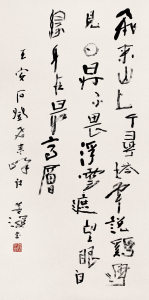 飛來山上千尋塔聞說鷄鳴
見日昇不畏浮雲遮望眼自
緣身在最高層
王安石登飛來峰